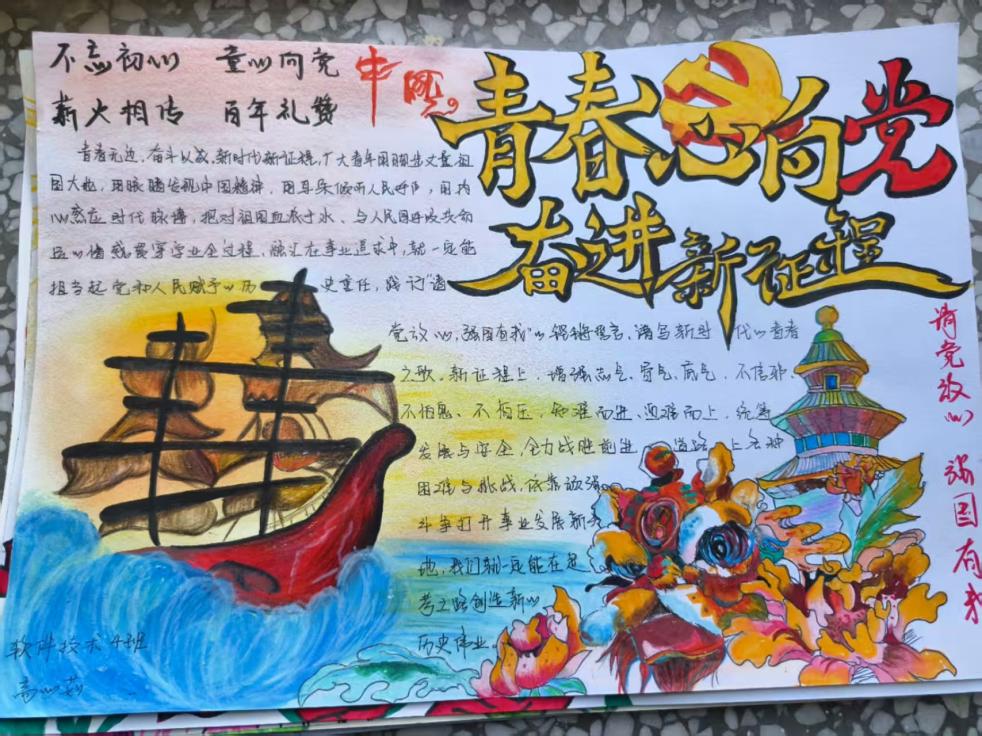 不忘初心 童心向党
中国
薪火相传 百年礼赞
青春心向党
奋进新征程
青春无边，奋斗以成，新时代新征程，广大青年用脚步丈量祖
国大地，用眼睛发现中国精神，用耳朵倾听人民呼声，用内
心感应时代脉搏，把对祖国血浓于水、与人民同呼吸共命
运心情感贯穿学业全过程，融汇在事业追求中，就一定能
担当起党和人民赋予心历史重任，践诺“请
党放心，强国有我”心铿锵誓言，谱写新时代心青春
之歌。新征程上，增强志气、骨气、底气，不信邪、
不怕鬼、不怕压，知难而进、迎难而上，统筹
发展与安全，全力战胜前进道路上各种
困难与挑战，依靠顽强
斗争打开事业发展新天
地，我们就一定能在赶
考之路创造新心
历史伟业。
请党放心 强国有我
软件技术4班